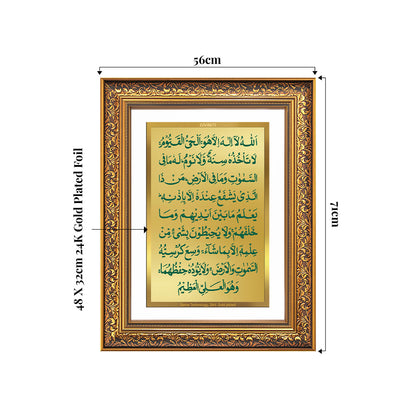 56cm
48 X 32cm 24K Gold Plated Foil
71cm
اَللّٰهُ لَآ اِلٰهَ اِلَّا هُوَ ۚ اَلْحَیُّ الْقَیُّوْمُ ۚ
لَا تَاْخُذُهٗ سِنَةٌ وَّلَا نَوْمٌ ؕ لَهٗ مَا فِی
السَّمٰوٰتِ وَمَا فِی الْاَرْضِ ؕ مَنْ ذَا
الَّذِیْ یَشْفَعُ عِنْدَهٗۤ اِلَّا بِاِذْنِهٖ ؕ
یَعْلَمُ مَا بَیْنَ اَیْدِیْهِمْ وَمَا
خَلْفَهُمْ ۚ وَلَا یُحِیْطُوْنَ بِشَیْءٍ مِّنْ
عِلْمِهٖۤ اِلَّا بِمَا شَآءَ ۚ وَسِعَ كُرْسِیُّهُ
السَّمٰوٰتِ وَالْاَرْضَ ۚ وَلَا یَئُوْدُهٗ حِفْظُهُمَا ۚ
وَهُوَ الْعَلِیُّ الْعَظِیْمُ